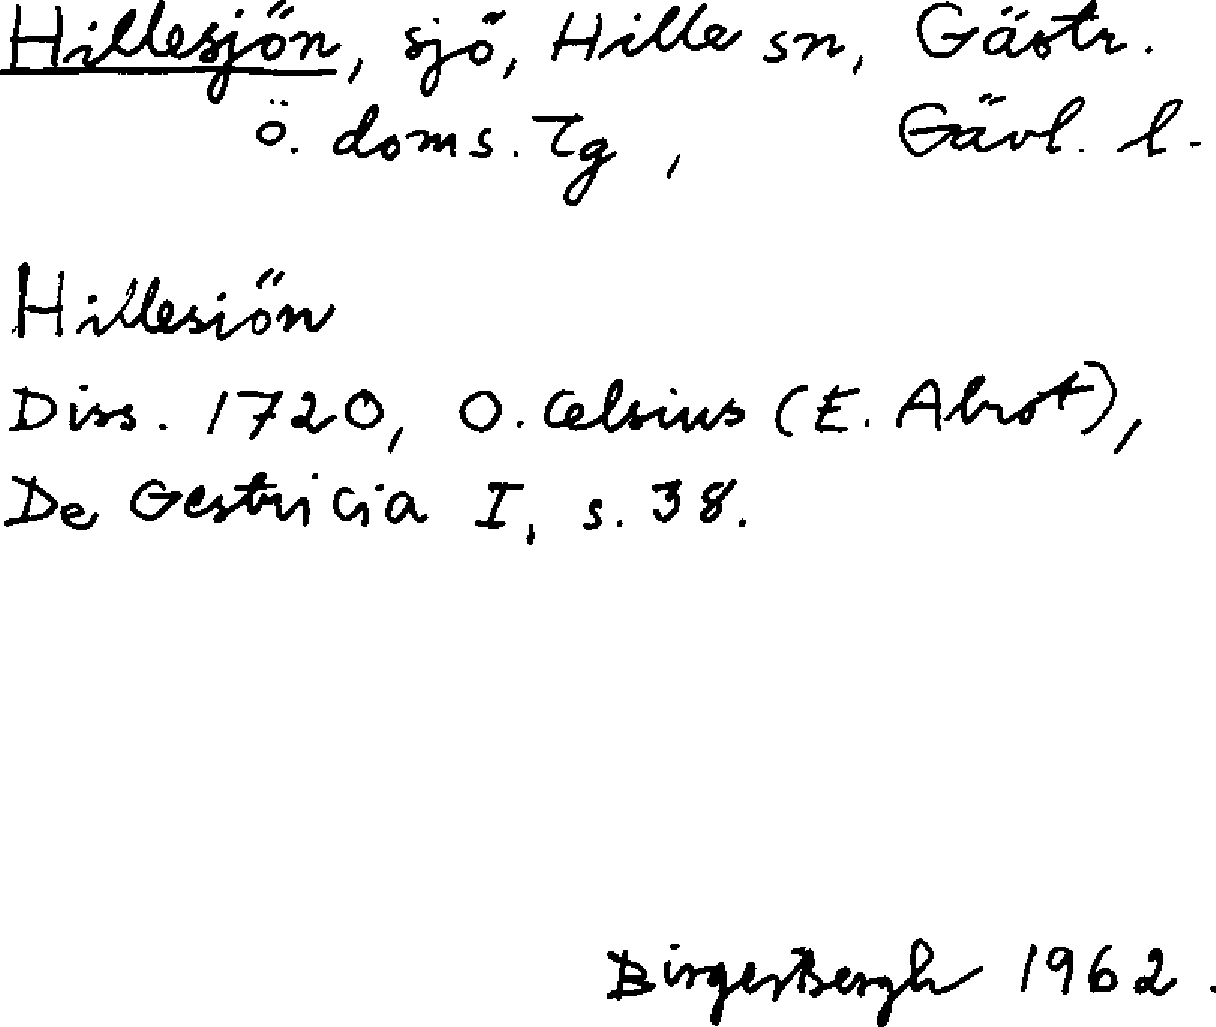 Hillesjön, sjö, Hille sn, Gästr.
ö. doms. Tg, Gävl. l.
Hillesiön
Diss. 1720, O. Celsius (E. Abrot),
De Gestricia I, s. 38.
Birger Bergh 1962.